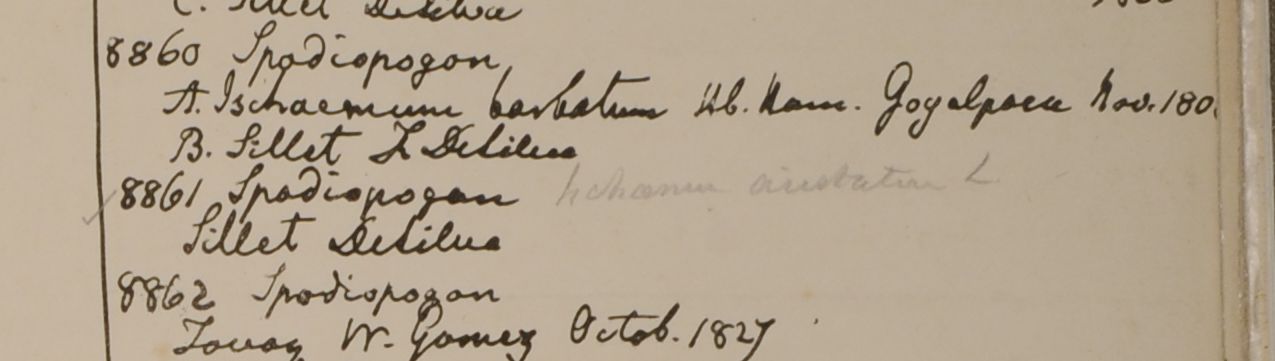 C. Sillet DeSilva
8860 Spodiopogon
A. Ischaemum barbatum Hb. Ham. Gogalpara Nov. 180
B. Sillet F DeSilva
8861 Spodiopogon Ischaemum aristatum L
Sillet DeSilva
8862 Spodiopogon
Tavoy W. Gomez Octob. 1827